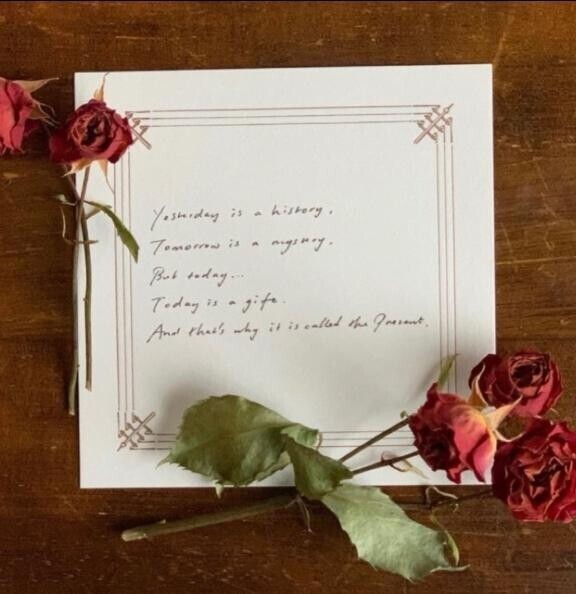 Yesterday is a history,
Tomorrow is a mystery.
But today...
Today is a gift.
And that's why it is called the Present.